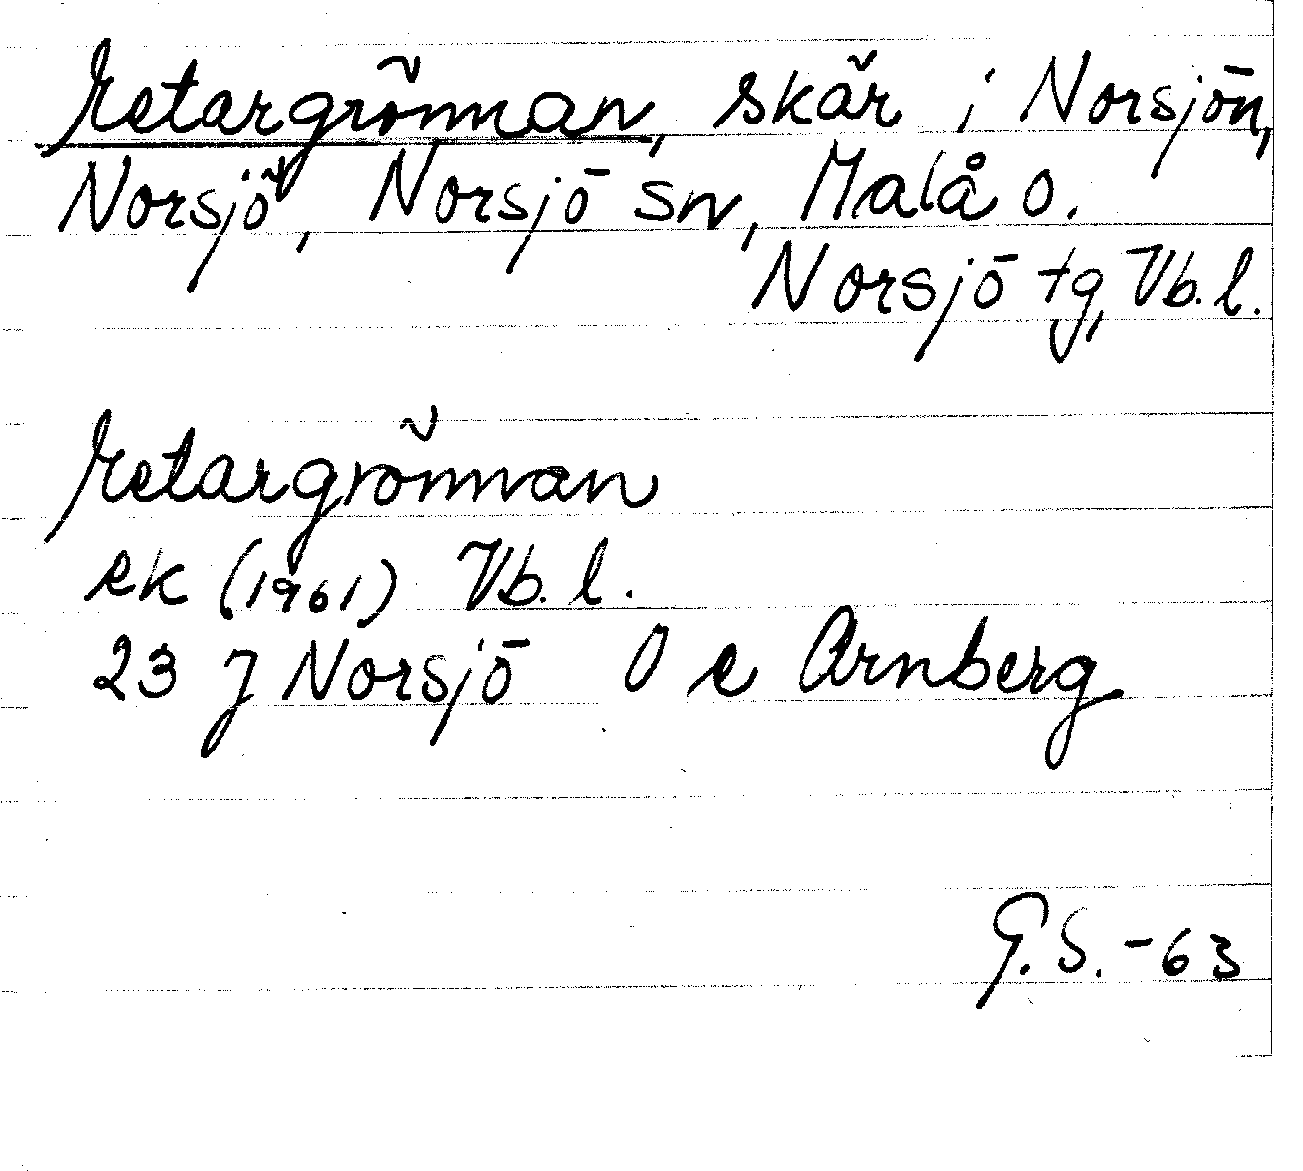 Metargrönnan, skär i Norsjön,
Norsjö, Norsjö sn, Malå o.
Norsjö tg, Vb. l.
Metargrönnan
ek (1961) Vb. l.
23 J Norsjö 0 e Arnberg
G. S. - 63